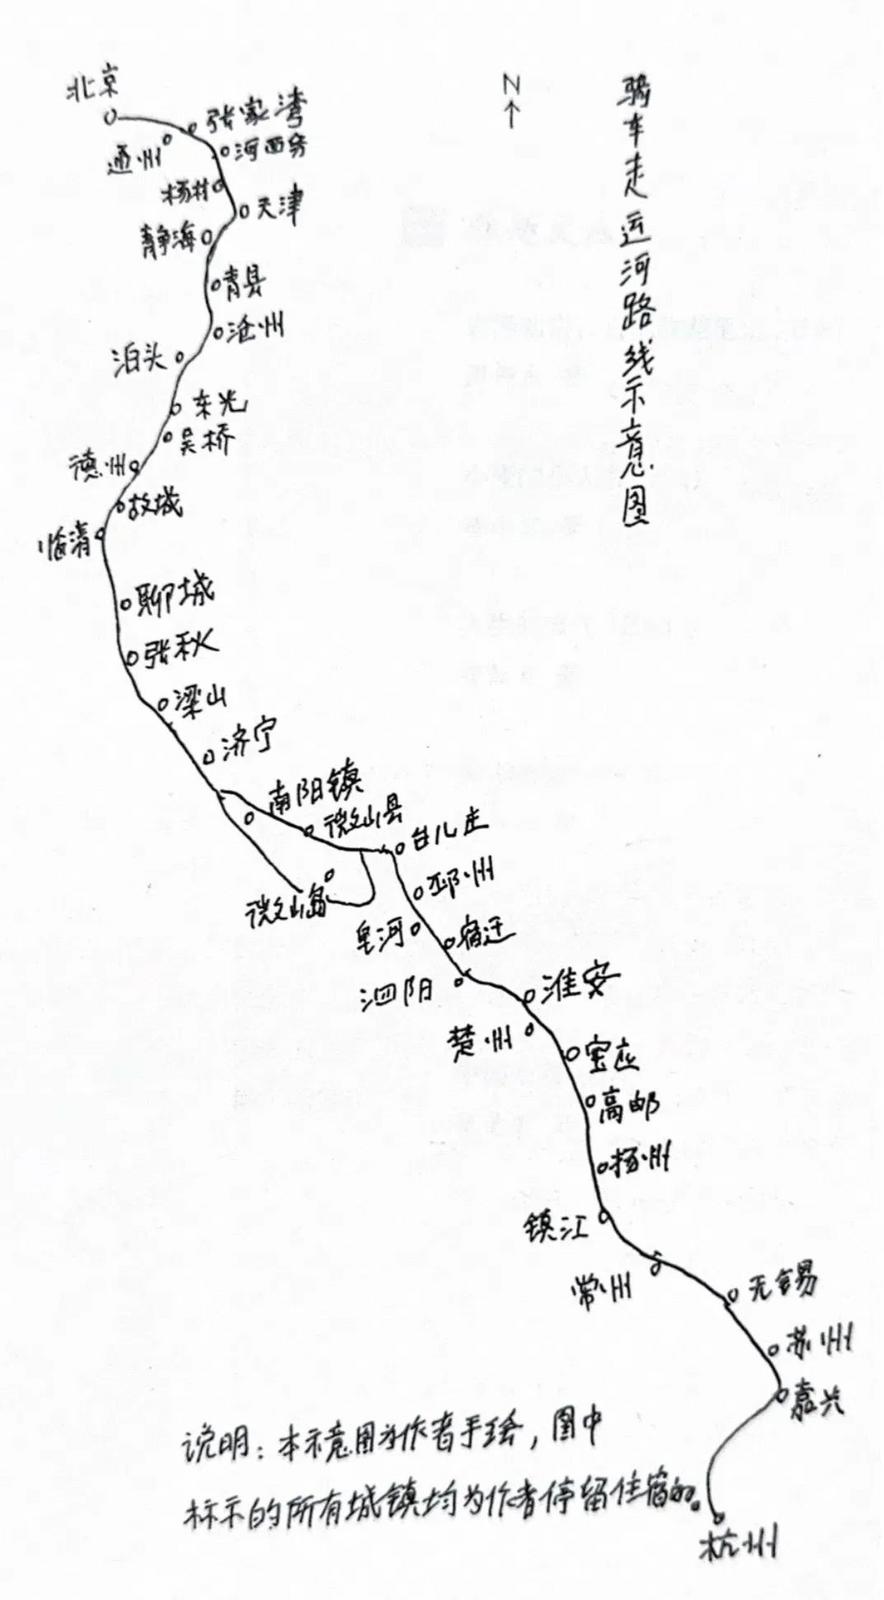 骑车走运河路线示意图
N
北京
张家湾
通州
河西务
杨村
天津
静海
青县
沧州
泊头
东光
吴桥
德州
故城
临清
聊城
张秋
梁山
济宁
南阳镇
微山县
台儿庄
微山岛
邳州
皂河
宿迁
泗阳
淮安
楚州
宝应
高邮
扬州
镇江
常州
无锡
苏州
嘉兴
杭州
说明：本示意图为作者手绘，图中
标示的所有城镇均为作者停留住宿的。